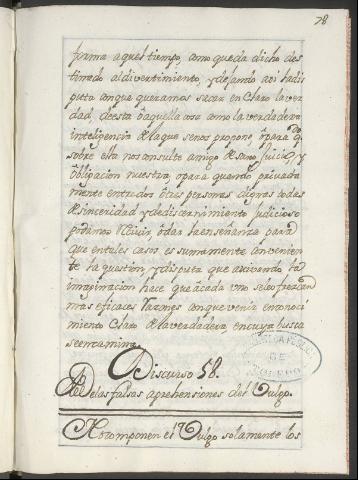 78
forma aquel tiempo, como queda dicho des
tinado al divertimiento, y dejando asi la dis
puta con que queramos sacar en claro la ver
dad, de esta ò aquella cosa como la verdadera
inteligencia de la que se nos propone, ò para q.
sobre ella nos consulte amigo de sano juicio, y
obligacion nuestra, ò para quando privada
mente entre dos ò tres personas dignas todas
de sinceridad y de discernimiento judicioso
podamos ò dar la enseñanza para
que en tales casos es sumamente convenien
te la question, y disputa que avivando la
imaginacion hace que à cada uno se le ofrezcan
mas eficaces razones con que venir en conoci
miento claro de la verdadera en cuya busca
se encamina.
Discurso 58.
De las falsas aprehensiones del Vulgo.
No componen el Vulgo solamente los
DE
TOLEDO